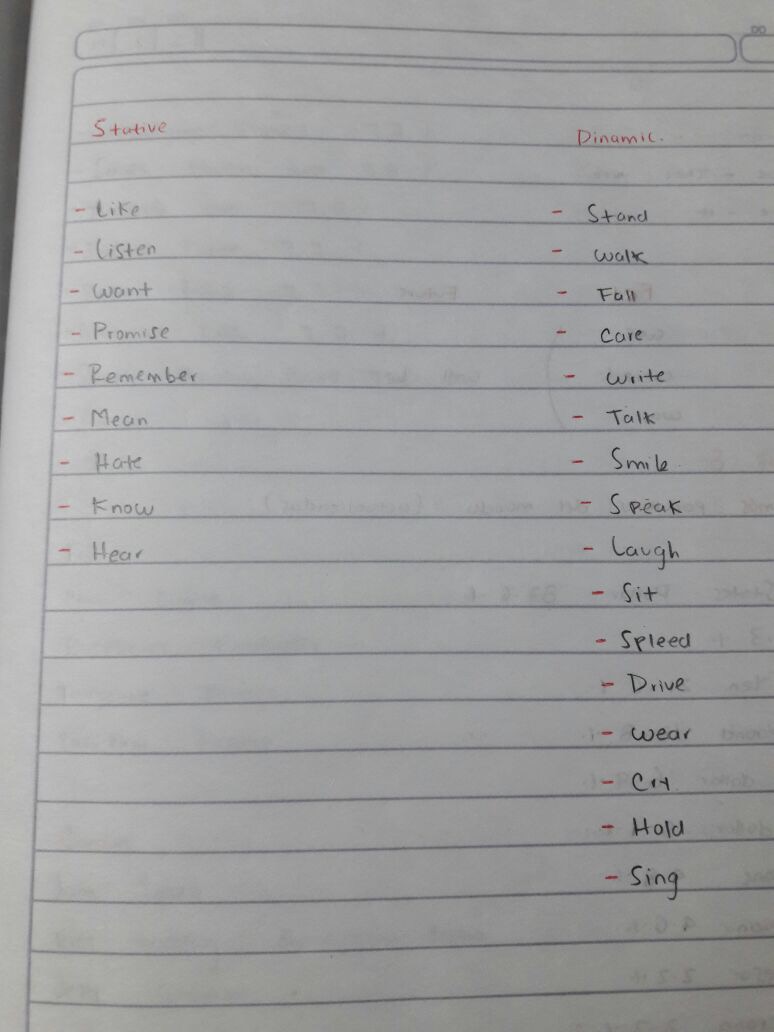 Stative Dinamic.
- Like - Stand
- Listen - Walk
- Want - Fall
- Promise - Care
- Remember - Write
- Mean - Talk
- Hate - Smile
- Know - Speak
- Hear - Laugh
- Sit
- Spleed
- Drive
- Wear
- Cry
- Hold
- Sing